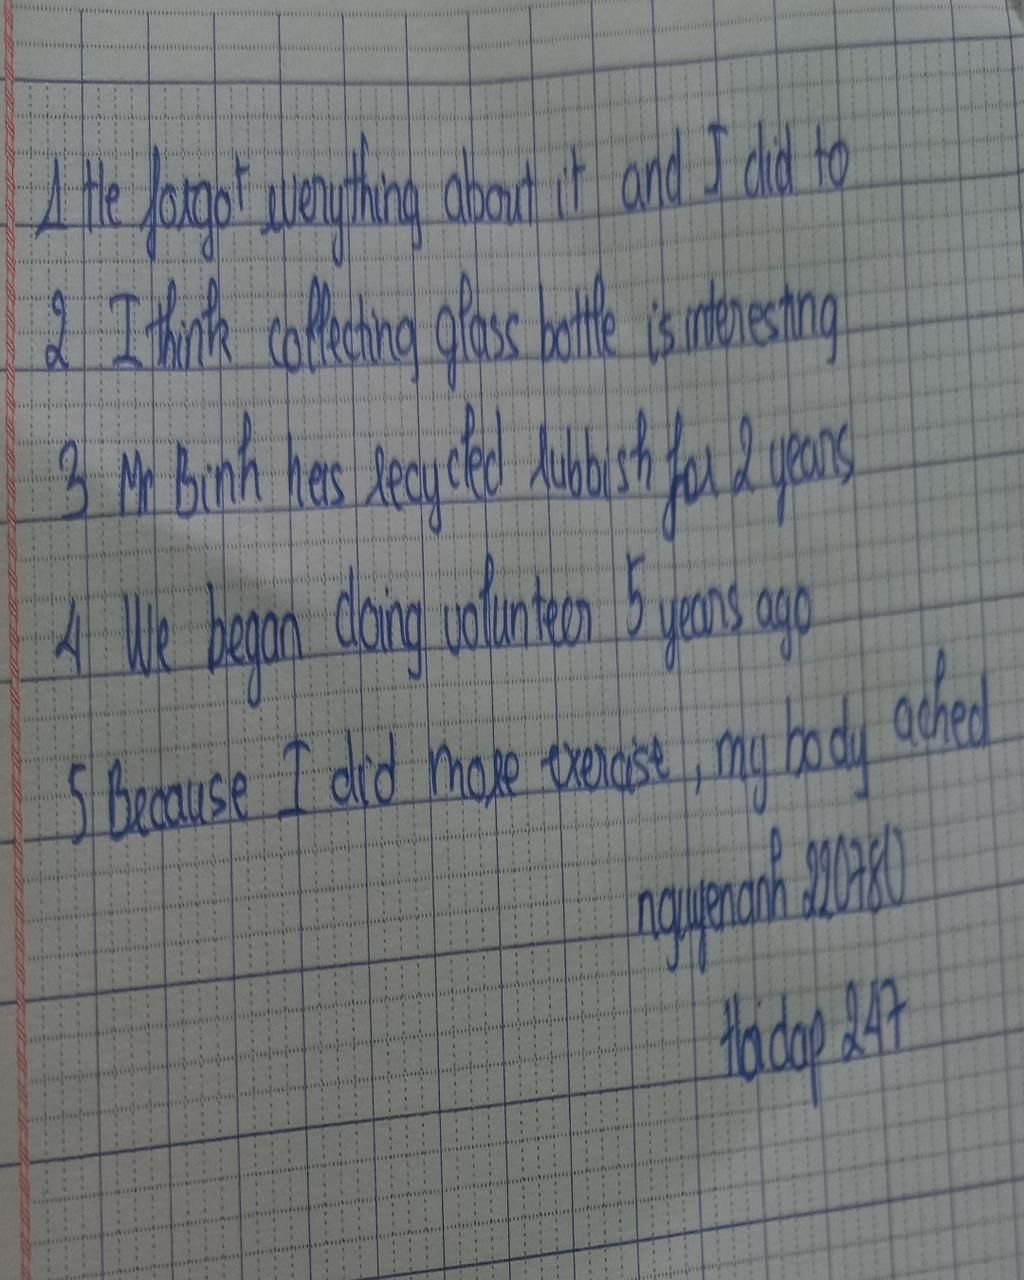 1 He forgot everything about it and I did to
2 I think collecting glass bottle is interesting
3 Mr Binh has recycled rubbish for 2 years
4 We began doing volunteer 5 years ago
5 Because I did more exercise, my body ached
nguyenanh 220780
Hoidap 247